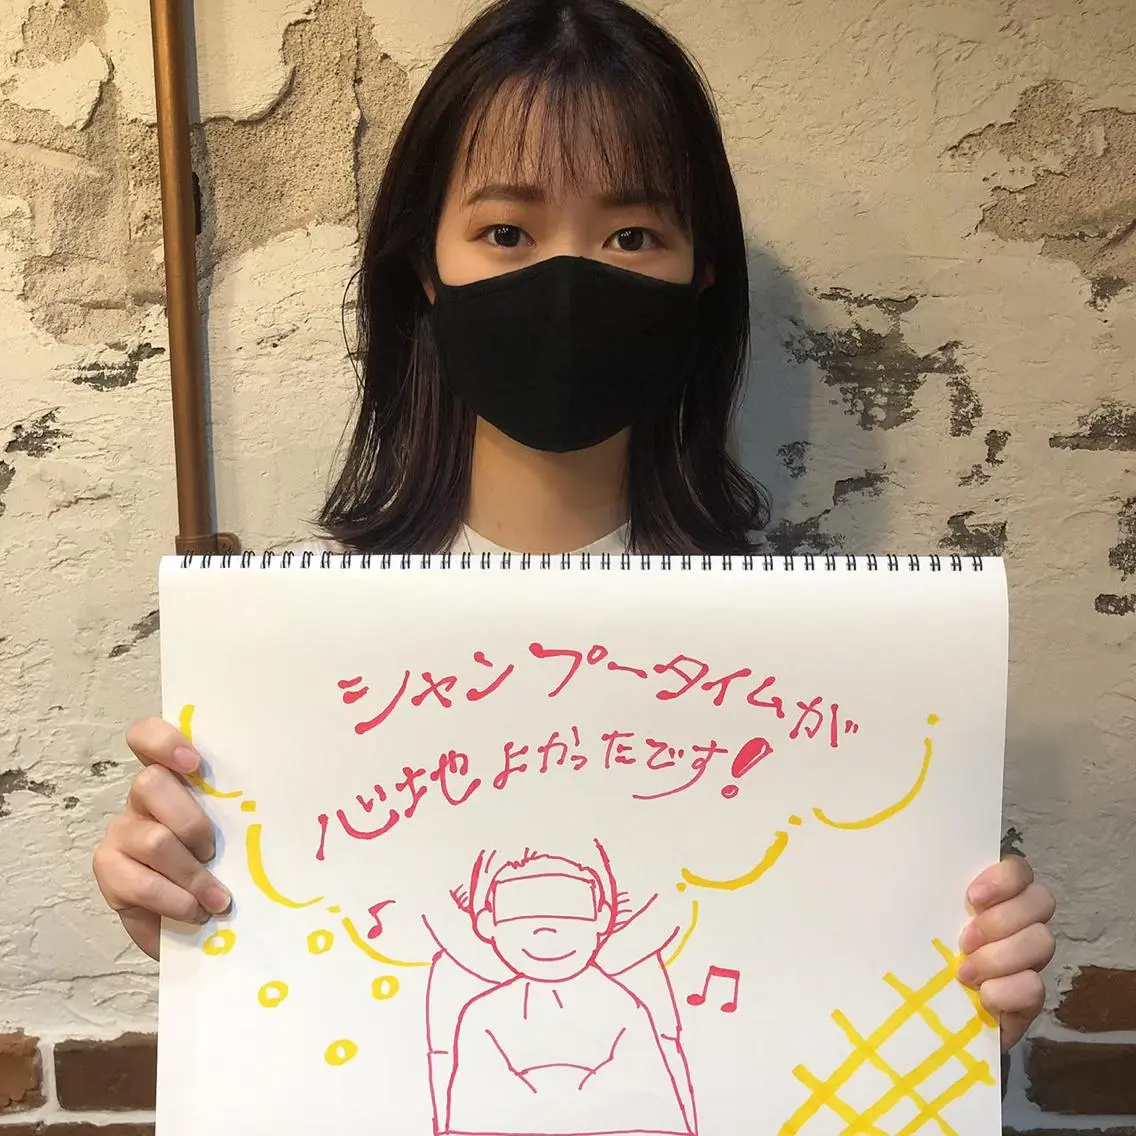 シャンプータイムが
心地よかったです!